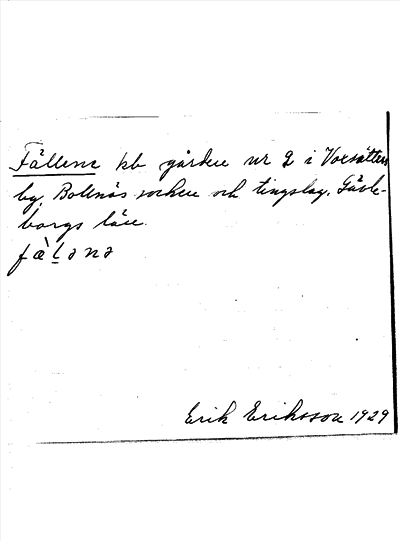 Fällene kb gården nr 2 i Voxsätters
by, Bollnäs socken och tingslag, Gävle-
borgs län.
fæ̀lənə
Erik Eriksson 1929